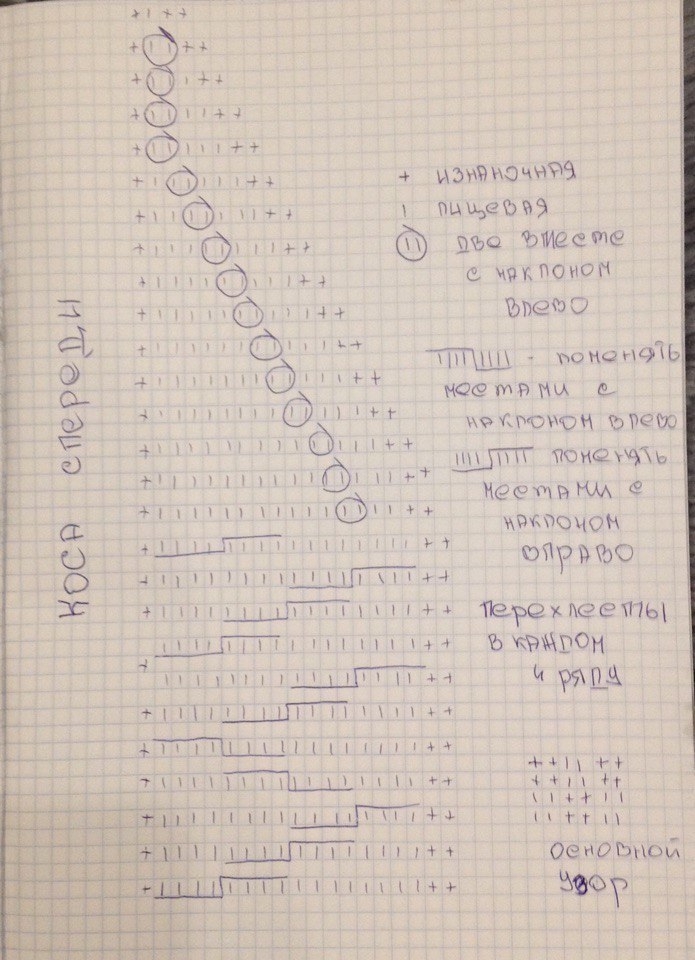 КОСА СПЕРЕДИ
+ ИЗНАНОЧНАЯ
| ЛИЦЕВАЯ
ДВЕ ВМЕСТЕ
С НАКЛОНОМ
ВЛЕВО
- ПОМЕНЯТЬ
МЕСТАМИ С
НАКЛОНОМ ВЛЕВО
ПОМЕНЯТЬ
МЕСТАМИ С
НАКЛОНОМ
ВПРАВО
ПЕРЕХЛЕСТЫ
В КАЖДОМ
4 РЯДУ
++||++
++||++
||++||
||++||
ОСНОВНОЙ
УЗОР